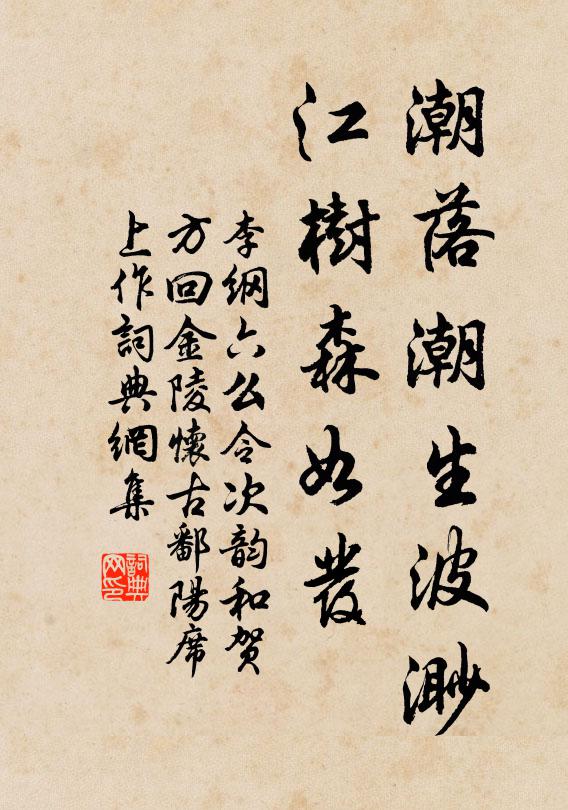 潮落潮生波渺
江樹森如發
李綱六么令次韵和賀
方回金陵懷古鄱陽席
上作詞典網集
詞典
网印